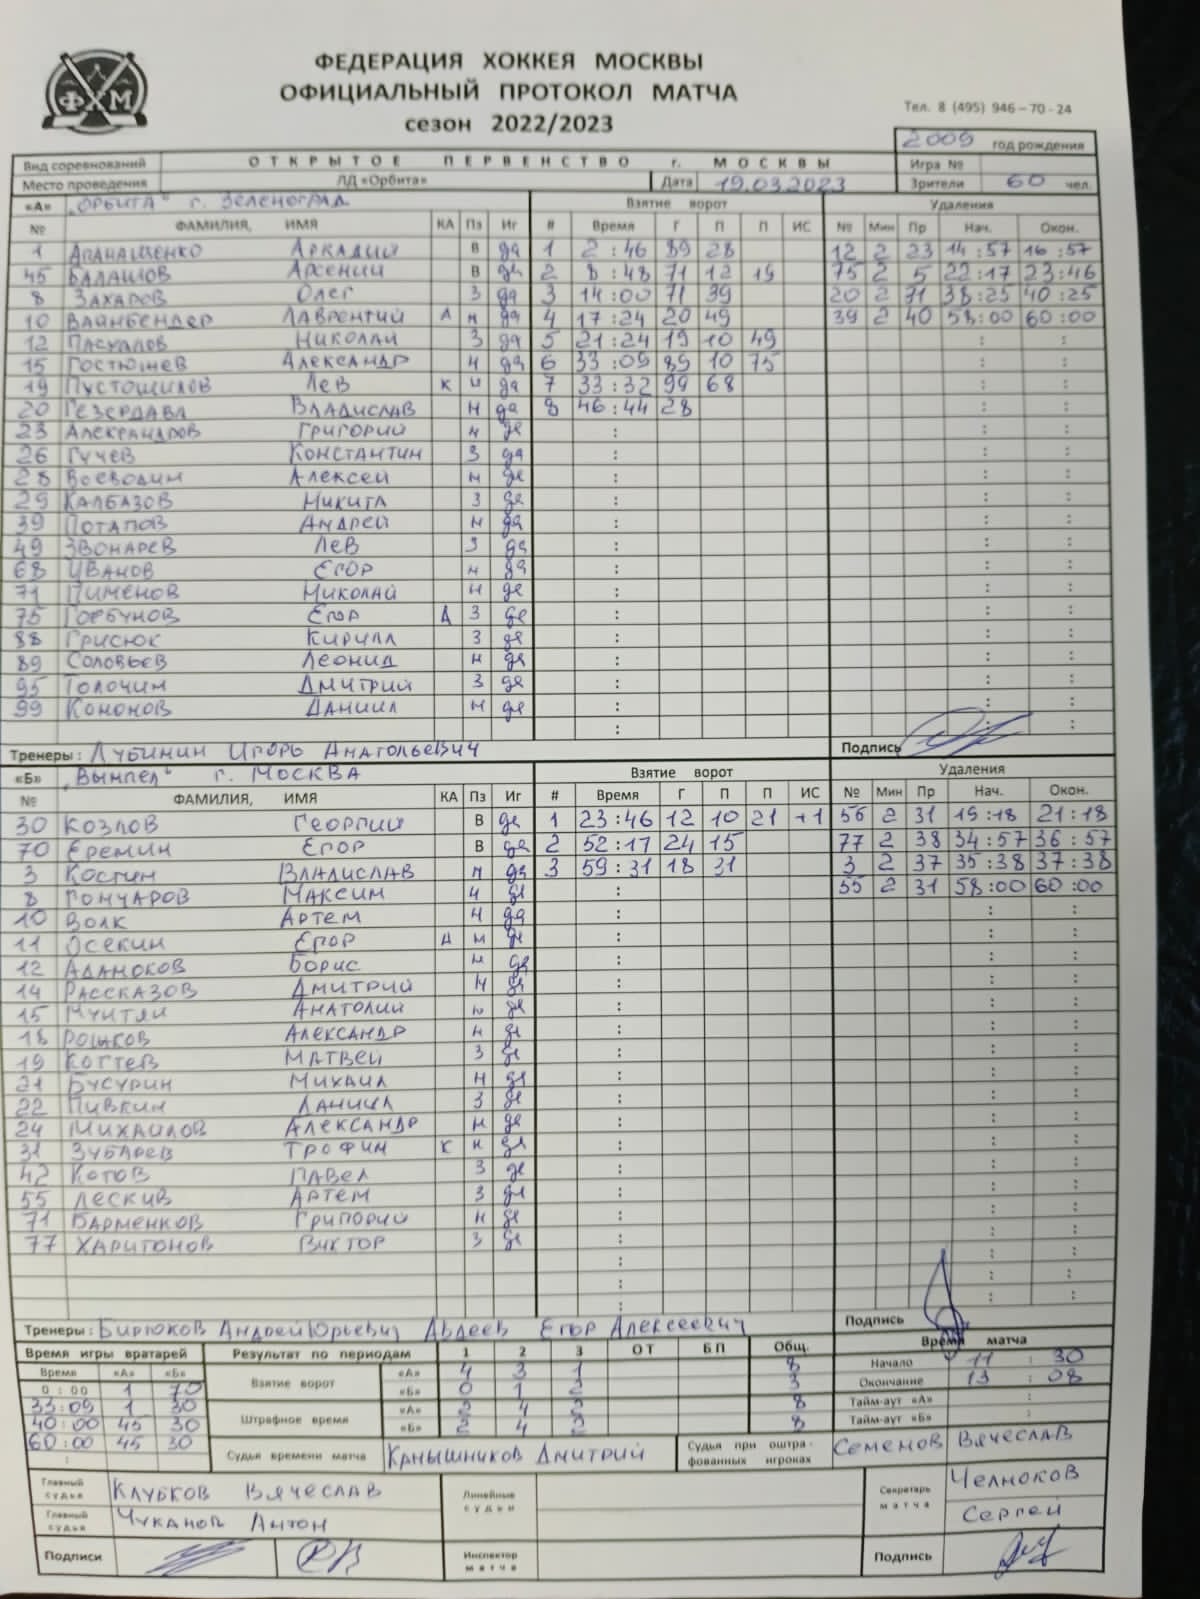 ФЕДЕРАЦИЯ ХОККЕЯ МОСКВЫ
ОФИЦИАЛЬНЫЙ ПРОТОКОЛ МАТЧА
сезон 2022/2023
ФХМ
Тел. 8 (495) 946–70-24
2009 год рождения
Вид соревнований ОТКРЫТОЕ ПЕРВЕНСТВО г. МОСКВЫ Игра №
Место проведения ЛД «Орбита» Дата 19.03.2023 Зрители 60 чел.
«А» "ОРБИТА" г. ЗЕЛЕНОГРАД Взятие ворот Удаления
№ ФАМИЛИЯ, ИМЯ КА Пз Иг # Время Г П П ИС № Мин Пр Нач. Окон.
1 АПАНАЩЕНКО АРКАДИЙ В да 1 2:46 89 28 12 2 23 14:57 16:57
45 БАЛАШОВ АРСЕНИЙ В да 2 8:48 71 12 19 75 2 5 22:17 23:46
8 ЗАХАРОВ ОЛЕГ З да 3 14:00 71 39 20 2 71 38:25 40:25
10 ВАЙНБЕНДЕР ЛАВРЕНТИЙ А н да 4 17:24 20 49 39 2 40 58:00 60:00
12 ПАСХАЛОВ НИКОЛАЙ З да 5 21:24 19 10 49
15 ГОСТЮШЕВ АЛЕКСАНДР н да 6 33:09 89 10 75
19 ПУСТОШИЛОВ ЛЕВ К н да 7 33:32 99 68
20 ГЕЗЕРДАВА ВЛАДИСЛАВ н да 8 46:44 28
23 АЛЕКСАНДРОВ ГРИГОРИЙ н да
26 ГУЧЕВ КОНСТАНТИН З да
28 ВОЕВОДИН АЛЕКСЕЙ н да
29 КАЛБАЗОВ НИКИТА З да
39 ПОТАПОВ АНДРЕЙ н да
49 ЗВОНАРЕВ ЛЕВ З да
68 ИВАНОВ ЕГОР н да
71 ПИМЕНОВ НИКОЛАЙ н да
75 ГОРБУНОВ ЕГОР А З да
88 ГРИСЮК КИРИЛЛ З да
89 СОЛОВЬЕВ ЛЕОНИД н да
95 ТОЛОЧИН ДМИТРИЙ З да
99 КОНОНОВ ДАНИИЛ н да
Тренеры: ЛУБИНИН ИГОРЬ АНАТОЛЬЕВИЧ Подпись
«Б» "ВЫМПЕЛ" г. МОСКВА Взятие ворот Удаления
№ ФАМИЛИЯ, ИМЯ КА Пз Иг # Время Г П П ИС № Мин Пр Нач. Окон.
30 КОЗЛОВ ГЕОРГИЙ В да 1 23:46 12 10 21 +1 56 2 31 19:18 21:18
70 ЕРЕМИН ЕГОР В да 2 52:17 24 15 77 2 38 34:57 36:57
3 КОСТИН ВЛАДИСЛАВ н да 3 59:31 18 31 3 2 37 35:38 37:38
8 ГОНЧАРОВ МАКСИМ н да 55 2 31 58:00 60:00
10 ВОЛК АРТЕМ н да
11 ОСЕКИН ЕГОР А н да
12 АДАМОКОВ БОРИС н да
14 РАССКАЗОВ ДМИТРИЙ н да
15 МУИТЯН АНАТОЛИЙ н да
18 РОШКОВ АЛЕКСАНДР н да
19 КОГТЕВ МАТВЕЙ З да
21 БУСУРИН МИХАИЛ н да
22 ПИВКИН ДАНИИЛ З да
24 МИХАЙЛОВ АЛЕКСАНДР н да
31 ЗУБАРЕВ ТРОФИМ К н да
42 КОТОВ ПАВЕЛ З да
55 ЛЕСКИВ АРТЕМ З да
71 БАРМЕНКОВ ГРИГОРИЙ н да
77 ХАРИТОНОВ ВИКТОР З да
Тренеры: БИРЮКОВ АНДРЕЙ ЮРЬЕВИЧ АВДЕЕВ ЕГОР АЛЕКСЕЕВИЧ Подпись
Время игры вратарей Результат по периодам 1 2 3 ОТ БП Общ. Время матча
Время «А» «Б» Взятие ворот «А» 4 3 1 8 Начало 11 : 30
0 : 00 1 70 «Б» 0 1 2 3 Окончание 13 : 08
33:09 1 30 Штрафное время «А» 2 4 2 8 Тайм-аут «А» :
40:00 45 30 «Б» 2 4 2 8 Тайм-аут «Б» :
60:00 45 30 Судья времени матча КАНЫШНИКОВ ДМИТРИЙ Судья при оштра-фованных игроках СЕМЕНОВ ВЯЧЕСЛАВ
Главный судья КЛУБКОВ ВЯЧЕСЛАВ Линейные судьи Секретарь матча ЧЕЛНОКОВ
Главный судья ЧУКАНОВ АНТОН СЕРГЕЙ
Подписи Инспектор матча Подпись